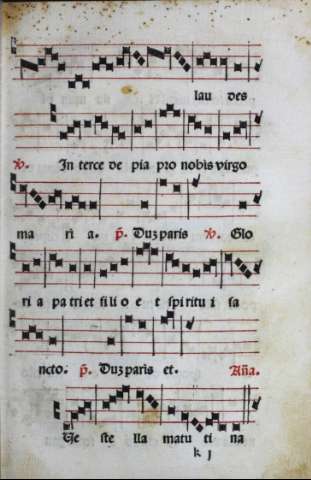 lau des
℣. In terce de pia pro nobis virgo
ma ri a. p̄. Duz paris ℣. Glo
ri a pa tri et fi li o e t spi ri tu i sa
ncto. p̄. Duz paris et. Aña.
Ue ste lla matu ti na
k j